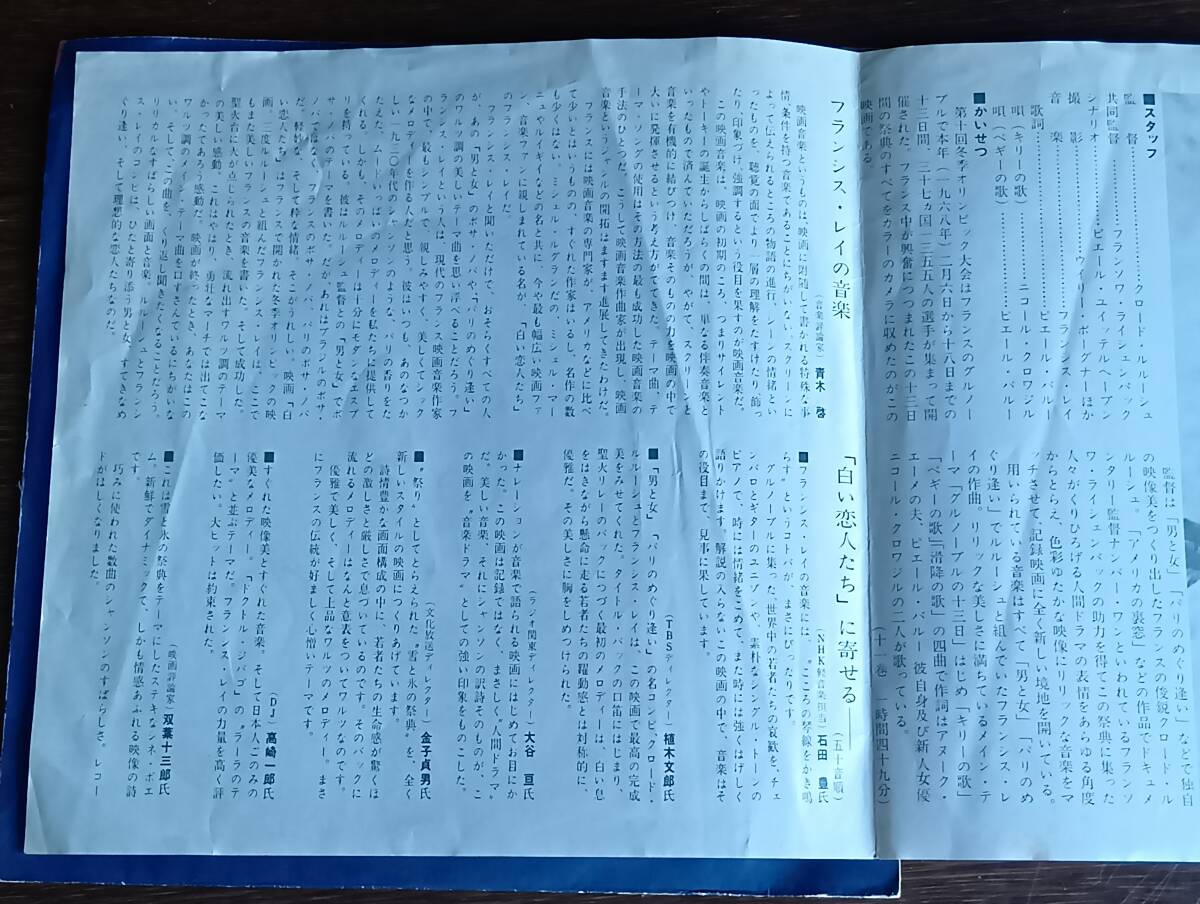 ■スタッフ
監督………………クロード・ルルーシュ
共同監督………フランソワ・ライシェンバック
シナリオ………ピエール・ユイッテルヘーブン
撮影………ウィリー・ボーグナーほか
音楽………………フランシス・レイ
歌詞………………ピエール・バルー
唄（キリーの歌）………ニコール・クロワジル
唄（ペギーの歌）………ピエール・バルー
■かいせつ
第十回冬季オリンピック大会はフランスのグルノー
ブルで本年（一九六八年）二月六日から十八日までの
十三日間、三十七ヵ国一三五五人の選手が集まって開
催された。フランス中が興奮につつまれたこの十三日
間の祭典のすべてをカラーのカメラに収めたのがこの
映画である。
監督は「男と女」「パリのめぐり逢い」などで独自
の映像美をつくり出したフランスの俊鋭クロード・ル
ルーシュ。「アメリカの裏窓」などの作品でドキュメ
ンタリー監督ナンバー・ワンといわれているフランソ
ワ・ライシェンバックの助力を得てこの祭典に集った
人々がくりひろげる人間ドラマの表情をあらゆる角度
からとらえ、色彩ゆたかな映像にリリックな音楽をマ
ッチさせて、記録映画に全く新しい境地を開いている。
用いられている音楽はすべて「男と女」「パリのめ
ぐり逢い」でルルーシュと組んでいたフランシス・レ
イの作曲。リリックな美しさに満ちているメイン・テ
ーマ「グルノーブルの十三日」はじめ「キリーの歌」
「ペギーの歌」「滑降の歌」の四曲で作詞はアヌーク・
エーメの夫、ピエール・バルー 彼自身及び新人女優
ニコール・クロワジルの二人が歌っている。
（十一巻 一時間四十九分）
フランシス・レイの音楽
（音楽評論家）青木 啓
映画音楽というものは、映画に附随して書かれる特殊な事
情、条件を持つ音楽であることはちがいない。スクリーンに
よって伝えられるところの物語の進行、シーンの情緒とい
ったものを、聴覚の面でより一層の理解をたすけたり、飾っ
たり、印象づけ、強調するという役目を果すのが映画音楽だ。
この映画音楽は、映画の初期のころ、つまりサイレント
やトーキーの誕生からしばらくの間は、単なる伴奏音楽と
いったもので済んでいただろうが、やがて、スクリーンと
音楽を有機的に結びつけ、音楽そのものの力を映画の中で
大いに発揮させるという考え方がでてきた。テーマ曲、テ
ーマ・ソングの使用はその方法の最も成功した映画音楽の
手法のひとつだ。こうして映画音楽作曲家が出現し、映画
音楽というジャンルの開拓はますます進展してきたわけだ。
フランスには映画音楽の専門家が、アメリカなどに比べ
て少いとはいうものの、すぐれた作家はいるし、名作の数
も少くはない。モーリス・ジャールだの、ミシェル・マー
ニュやルイギイなどの名と共に、今や最も幅広い映画ファ
ン、音楽ファンに親しまれている名が、「白い恋人たち」
のフランシス・レイだ。
フランシス・レイと聞いただけで、おそらくすべての人
が、あの「男と女」のボサ・ノバや、「パリのめぐり逢い」
のワルツ調の美しいテーマ曲を思い浮べることだろう。フ
ランシス・レイという人は、現代のフランス映画音楽作家
の中で、最もシンプルで、親しみやすく、美しくてシック
なメロディーを作る人だと思う。彼はいつも、あのなつか
しい一九三〇年代のシャンソンのような、パリの香りをた
たえた、ムードいっぱいのメロディーを私たちに提供して
くれる。しかも、そのメロディーは十分にモダンなエスプ
リを持っている。彼はルルーシュ監督との「男と女」でボ
サ・ノバのテーマを書いた。だが、あれはブラジルのボサ・
ノバではなく、フランスのボサ・ノバ、パリのボサ・ノバ
だ。軽妙な、そして粋な情緒。そこがうれしい。映画「白
い恋人たち」はフランスで開かれた冬季オリンピックの映
画。三度ルルーシュと組んだフランシス・レイは、ここで
もまた美しいフランスの音楽を書いた。そして成功した。
聖火台に火が点じられたとき、流れ出すワルツ調のテーマ
の美しい感動。これはやはり、勇壮なマーチでは出てこな
かったであろう感動だ。映画が終ったとき、あなたはこの
ワルツ調のメイン・テーマ曲を口ずさんでいるにちがいな
い。そして、この曲を、くり返し聞きたくなることだろう。
リリカルなすばらしい画面と音楽。ルルーシュとフランシ
ス・レイのコンビは、ひたと寄り添う男と女、すてきなめ
ぐり逢い、そして理想的な恋人たちなのだ。
「白い恋人たち」に寄せる――
（五十音順）
（NHK軽音楽担当）石田 豊氏
■フランシス・レイの音楽には、“こころの琴線をかき鳴
らす”というコトバが、まさにぴったりです。
グルノーブルに集った、世界中の若者たちの哀歓を、チェ
ンバロとギターのユニゾンや、素朴なシングル・トーンの
ピアノで、時には情緒をこめて、また時には強くはげしく
語りかけます。解説の入らないこの映画の中で、音楽はそ
の役目まで、見事に果しています。
（TBSディレクター）植木文郎氏
■「男と女」「パリのめぐり逢い」の名コンビ、クロード・
ルルーシュとフランシス・レイは、この映画で最高の完成
美をみせてくれた。タイトル・バックの口笛にはじまり、
聖火リレーのバックにつづく最初のメロディーは、白い息
をはきながら懸命に走る若者たちの躍動感とは対称的に、
優雅だ。その美しさに胸をしめつけられた。
（ラジオ関東ディレクター）大谷 亘氏
■ナレーションが音楽で語られる映画にはじめてお目にか
かった。この映画は記録ではなく、まさしく“人間ドラマ”
だ。美しい音楽、それにシャンソンの訳詩そのものが、こ
の映画を“音楽ドラマ”としての強い印象をものこした。
（文化放送ディレクター）金子貞男氏
■“祭り”としてとらえられた“雪と氷の祭典”を、全く
新しいスタイルの映画につくりあげています。
詩情豊かな画面構成の中に、若者たちの生命感が驚くほ
どの激しさと厳しさで息づいているのです。そのバックに
流れるメロディーはなんと意表をついてワルツなのです。
優雅で美しく、そして上品なワルツのメロディー。まさ
にフランスの伝統が好ましく心憎いテーマです。
（DJ）高崎一郎氏
■すぐれた映像美とすぐれた音楽、そして日本人ごのみの
優美なメロディー。「ドクトル・ジバゴ」の“ラーラのテ
ーマ”と並ぶテーマだ。フランシス・レイの力量を高く評
価したい。大ヒットは約束された。
（映画評論家）双葉十三郎氏
■これは雪と氷の祭典をテーマにしたステキなシネ・ポエ
ム。新鮮でダイナミックで、しかも情感あふれる映像の詩
です。
巧みに使われた数曲のシャンソンのすばらしさ。レコー
ドがほしくなりました。